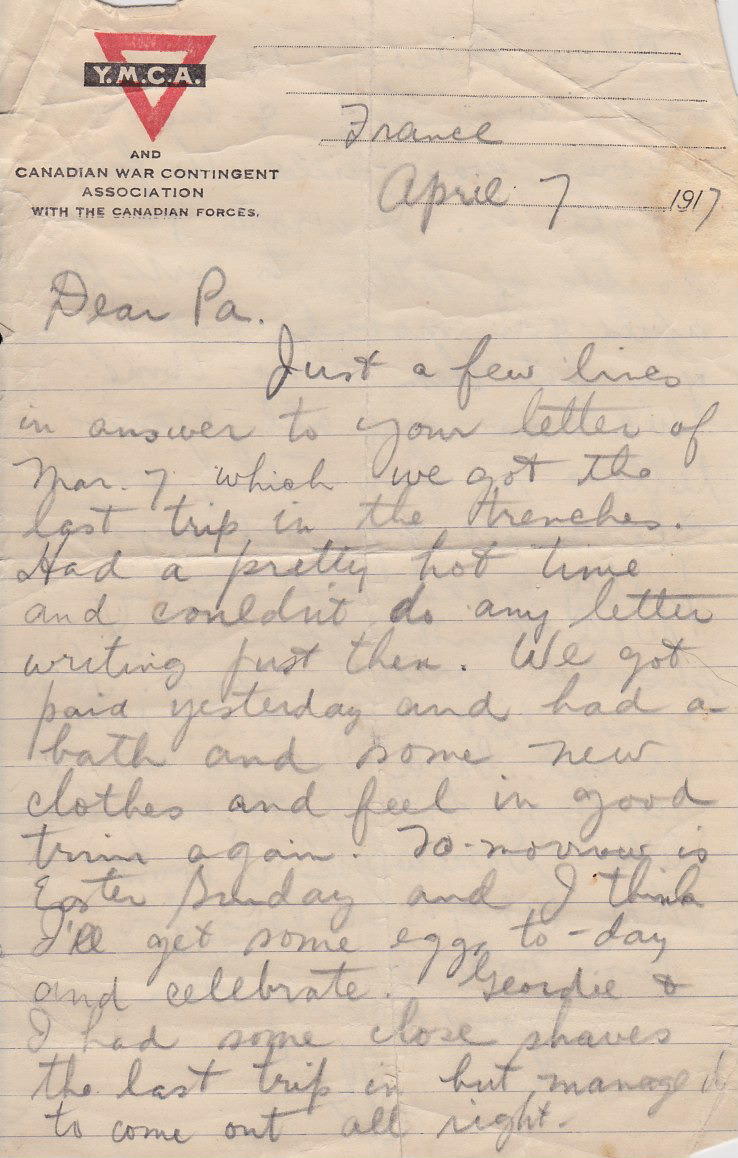 Y.M.C.A.
AND
CANADIAN WAR CONTINGENT
ASSOCIATION
WITH THE CANADIAN FORCES.
France
April 7 1917
Dear Pa.
Just a few lines
in answer to your letter of
Mar. 7 which we got the
last trip in the trenches.
Had a pretty hot time
and couldn't do any letter
writing just then. We got
paid yesterday and had a
bath and some new
clothes and feel in good
trim again. To-morrow is
Easter Sunday and I think
I'll get some eggs to-day
and celebrate. Geordie &
I had some close shaves
the last trip in but managed
to come out all right.